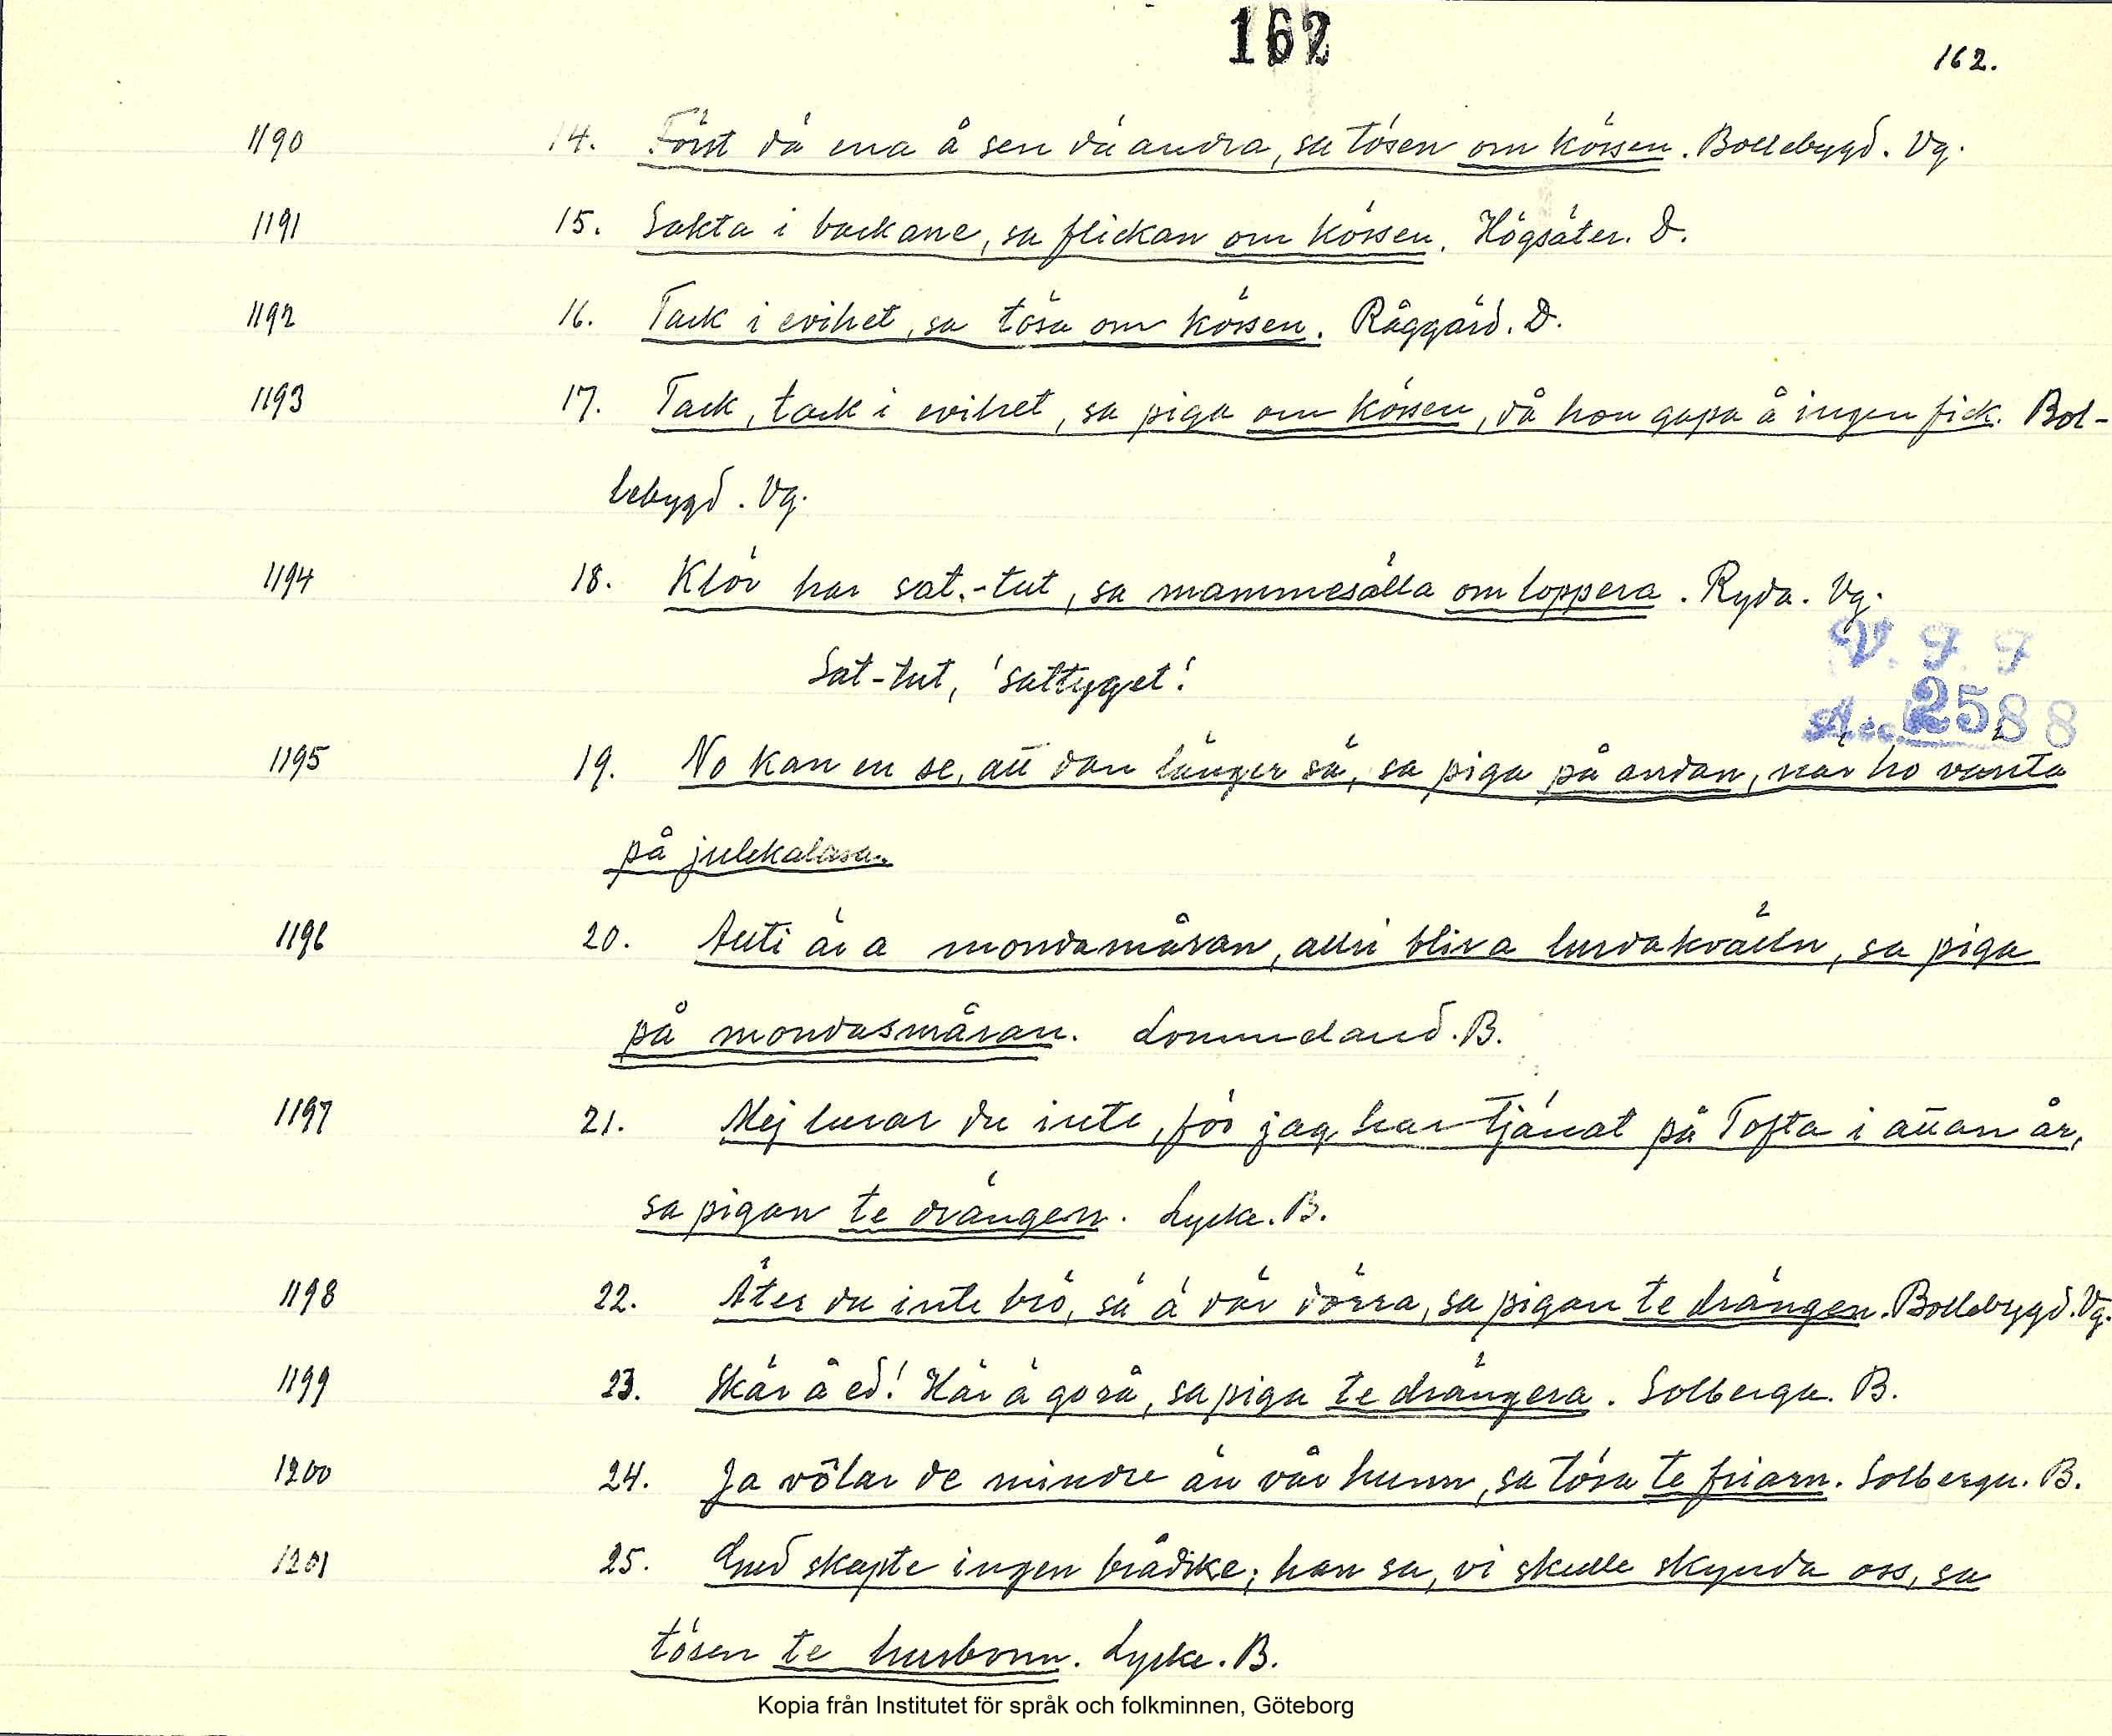 162
162.
1190 14. Först dä ena å sen dä andra, sa tösen om kössen. Bollebygd. Vg.
1191 15. Sakta i backane, sa flickan om kössen. Högsäter. D.
1192 16. Tack i evihet, sa tösa om kössen. Råggärd. D.
1193 17. Tack, tack i evihet, sa piga om kössen, då hon gapa å ingen fick. Bol-
lebygd. Vg.
1194 18. Klör har sat.-tut, sa mammesälla om loppera. Ryda. Vg.
Sat-tut, 'sattyget'.
V. F. F
Acc. 2588
1195 19. No kan en se, att dan länger sä, sa piga på andan, när ho vänta
på julekalasa.
1196 20. Auti är a mondamåran, alri blir a lurdakvälln, sa piga
på mondasmåran. Lommeland. B.
1197 21. Mej lurar du inte, för jag har tjänat på Tofta i annan år,
sa pigan te drängen. Lycke. B.
1198 22. Äter du inte brö, så ä där dörra, sa pigan te drängen. Bollebygd. Vg.
1199 23. Skär å ed! Här ä go rå, sa piga te drängera. Solberga. B.
1200 24. Ja völar de mindre än vår hunn, sa tösa te friarn. Solberga. B.
1201 25. Gud skapte ingen brådske; han sa, vi skulle skynda oss, sa
tösen te husbonn. Lycke. B.
Kopia från Institutet för språk och folkminnen, Göteborg